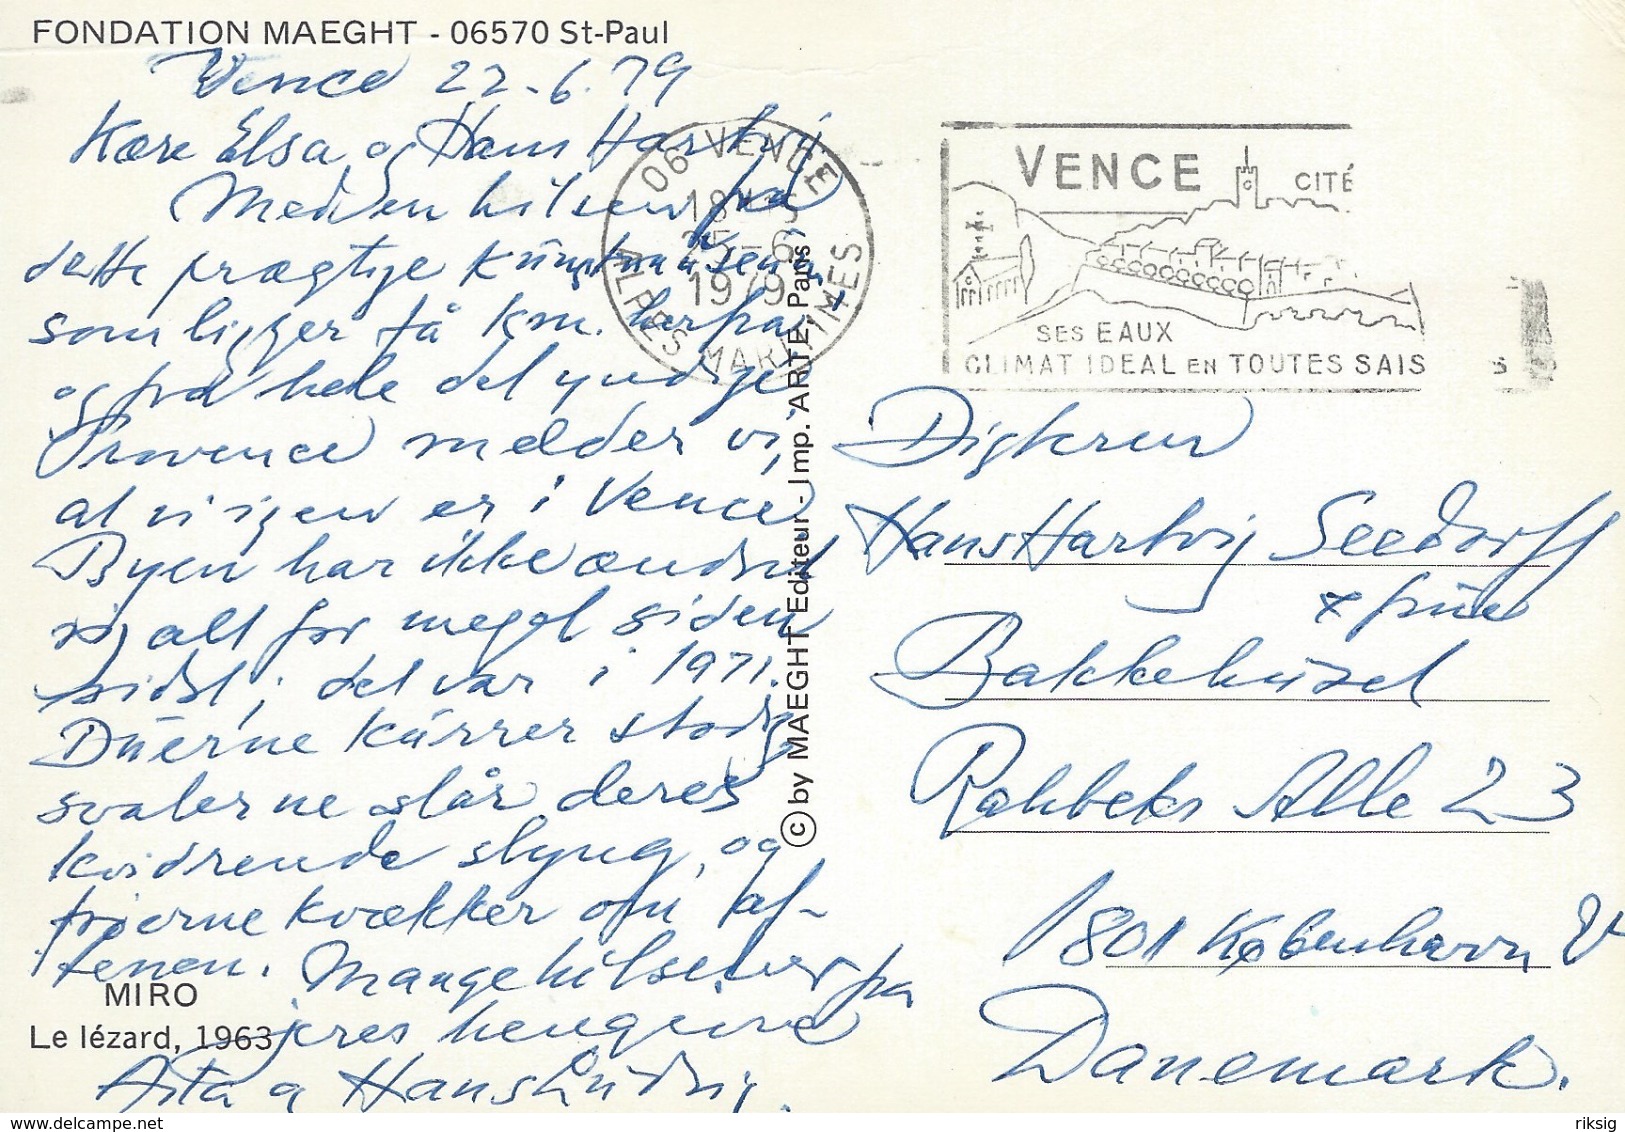 FONDATION MAEGHT - 06570 St-Paul
Vence 22-6.79
Kære Elsa og Hans Hartvig
Med en hilsen fra
dette prægtige kunstmuseum
som ligger få km. herfra
og fra hele det yndige
Provence melder vi,
at vi igen er i Vence
Byen har ikke ændret
sig alt for meget siden
sidst; det var i 1971.
Duerne kurrer stadig
svalerne slår deres
kvidrende slyng, og
frøerne kvækker om af-
tenen. Mange hilsener fra
jeres hengivne
Asta og Hans Ludvig.
MIRO
Le lézard, 1963
© by MAEGHT Editeur - Imp. ARTE Paris
06 VENCE
18H
25-6
1979
ALPES MARITIMES
VENCE
CITÉ
SES EAUX
CLIMAT IDEAL EN TOUTES SAIS S
Digteren
Hans Hartvig Seedorff
+ frue
Bakkehuset
Rahbeks Alle 23
1801 København V
Danemark.
riksig